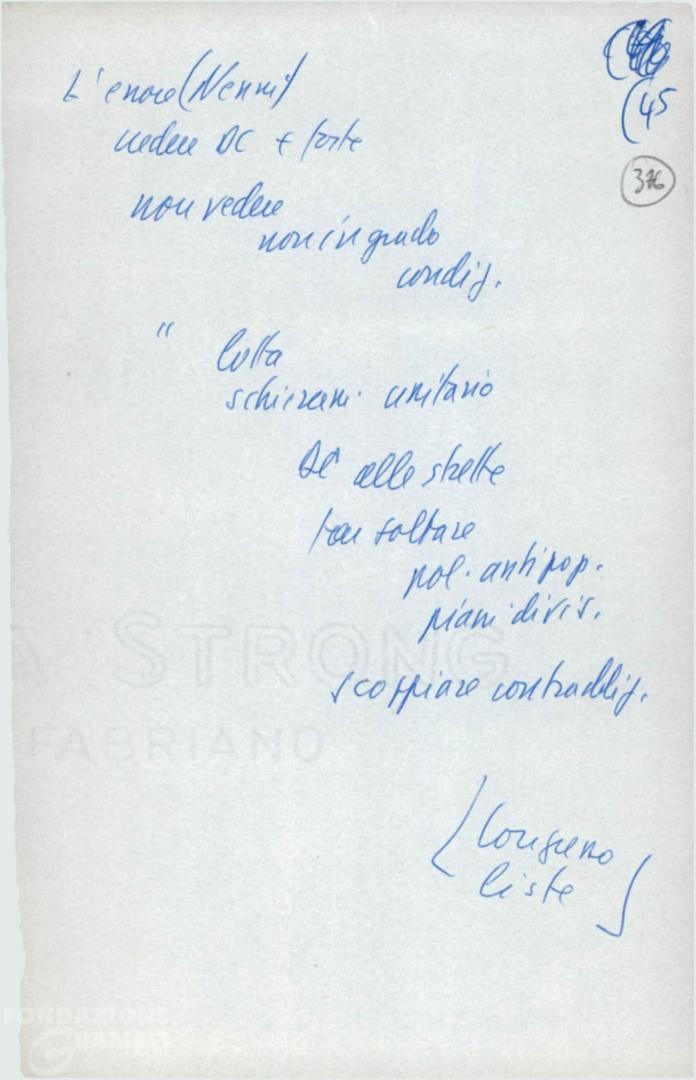 (45
376
L'errore (Nenni)
vedere DC + forte
non vedere
non in grado
condiz.
" lotta
schieram. unitario
DC alle strette
far saltare
pol. antipop.
piani divis.
scoppiare contraddiz.
[Congresso
liste]
A STRONG
FABRIANO
FONDAZIONE
GRAMSCI